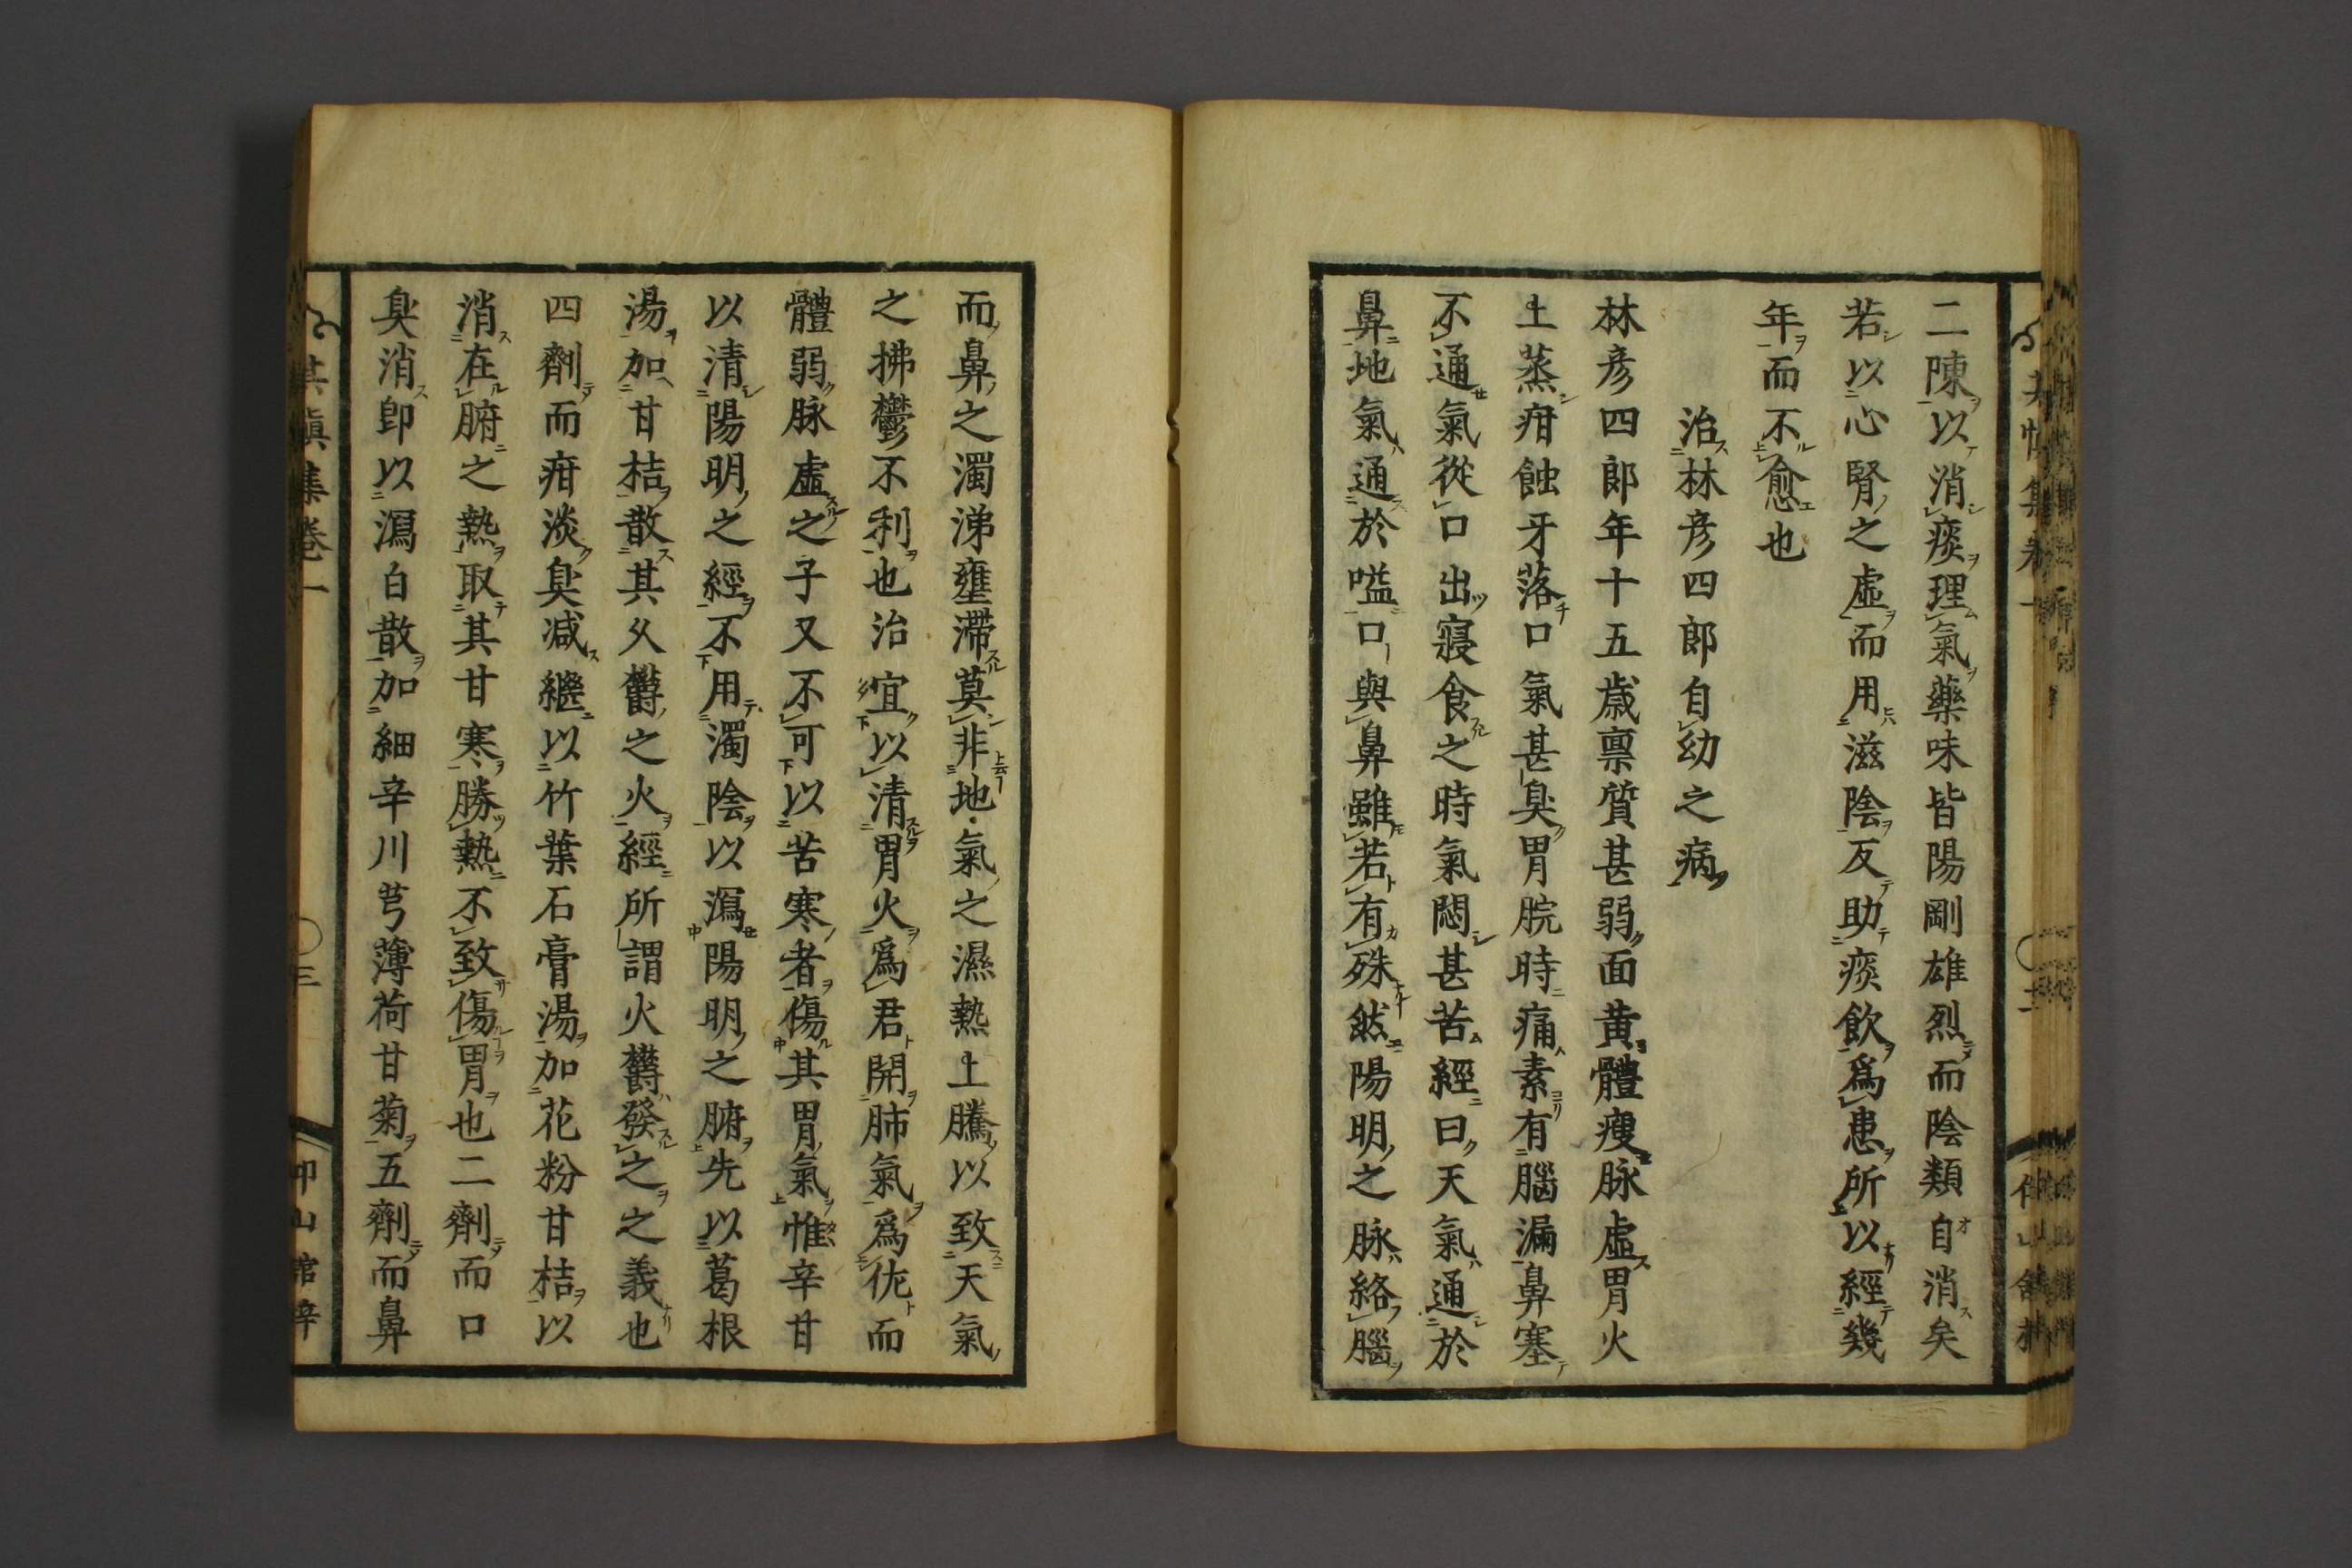 二陳以消痰理氣藥味皆陽剛雄烈而陰類自消矣
若以心腎之虛而用滋陰反助痰飲爲患所以經幾
年而不愈也
治林彥四郎自幼之病
林彥四郎年十五歲禀質甚弱面黃體瘦脉虛胃火
上蒸疳蝕牙落口氣甚臭胃脘時痛素有腦漏鼻塞
不通氣從口出寢食之時氣悶甚苦經曰天氣通於
鼻地氣通於嗌口與鼻雖若有殊然陽明之脉絡腦
而鼻之濁涕壅滯莫非地氣之濕熱上騰以致天氣
之拂鬱不利也治宜以清胃火爲君開肺氣爲佐而
體弱脉虛之子又不可以苦寒者傷其胃氣惟辛甘
以清陽明之經不用濁陰以瀉陽明之腑先以葛根
湯加甘桔散其久欝之火經所謂火欝發之之義也
四劑而疳淡臭減繼以竹葉石膏湯加花粉甘桔以
消在腑之熱取其甘寒勝熱不致傷胃也二劑而口
臭消卽以瀉白散加細辛川芎薄荷甘菊五劑而鼻
集卷一
三